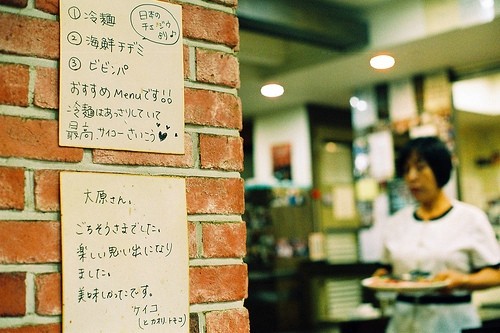 ① 冷麺
日本の
チェジウ
より♪
② 海鮮チヂミ
③ ビビンパ
おすすめMenuです!!
冷麺はあっさりしていて
最高 サイコー さいこう♥
大原さん。
ごちそうさまでした。
楽しい思い出になり
ました。
美味しかったです。
ケイコ
(とカオリ、トモコ)